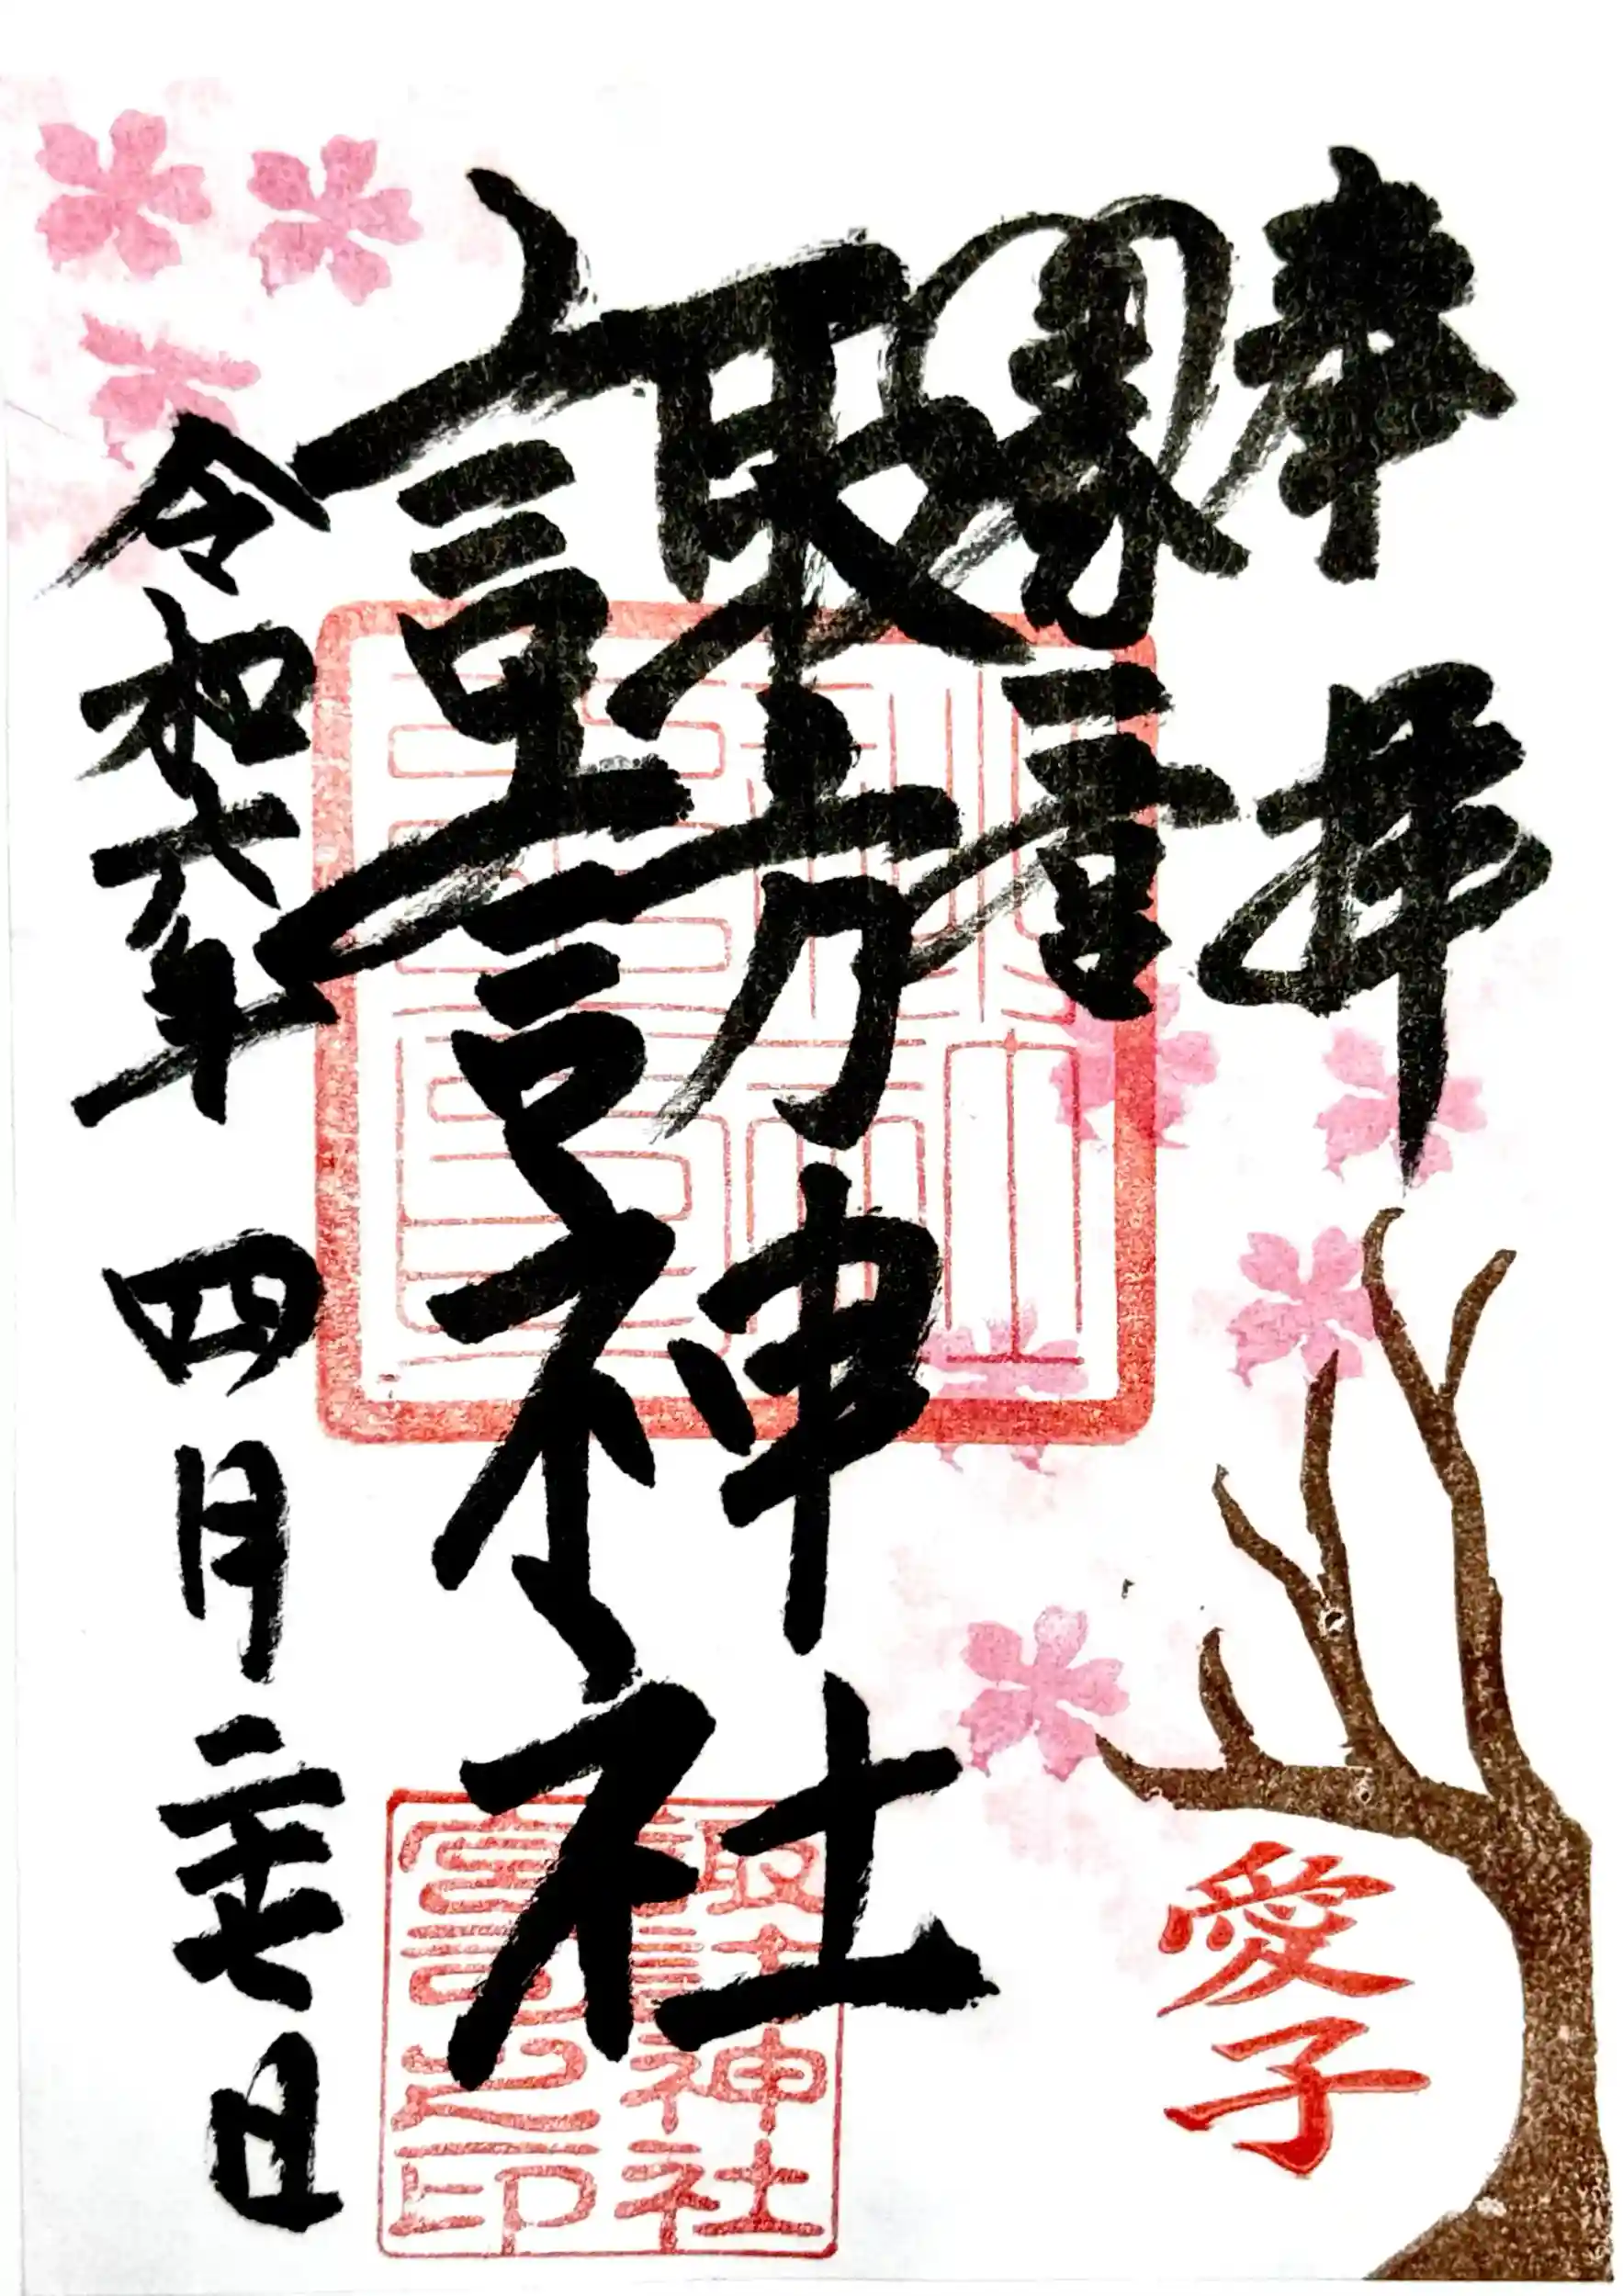 奉拝
諏訪神社
令和六年 四月二十七日
愛子
諏訪神社
宮司之印